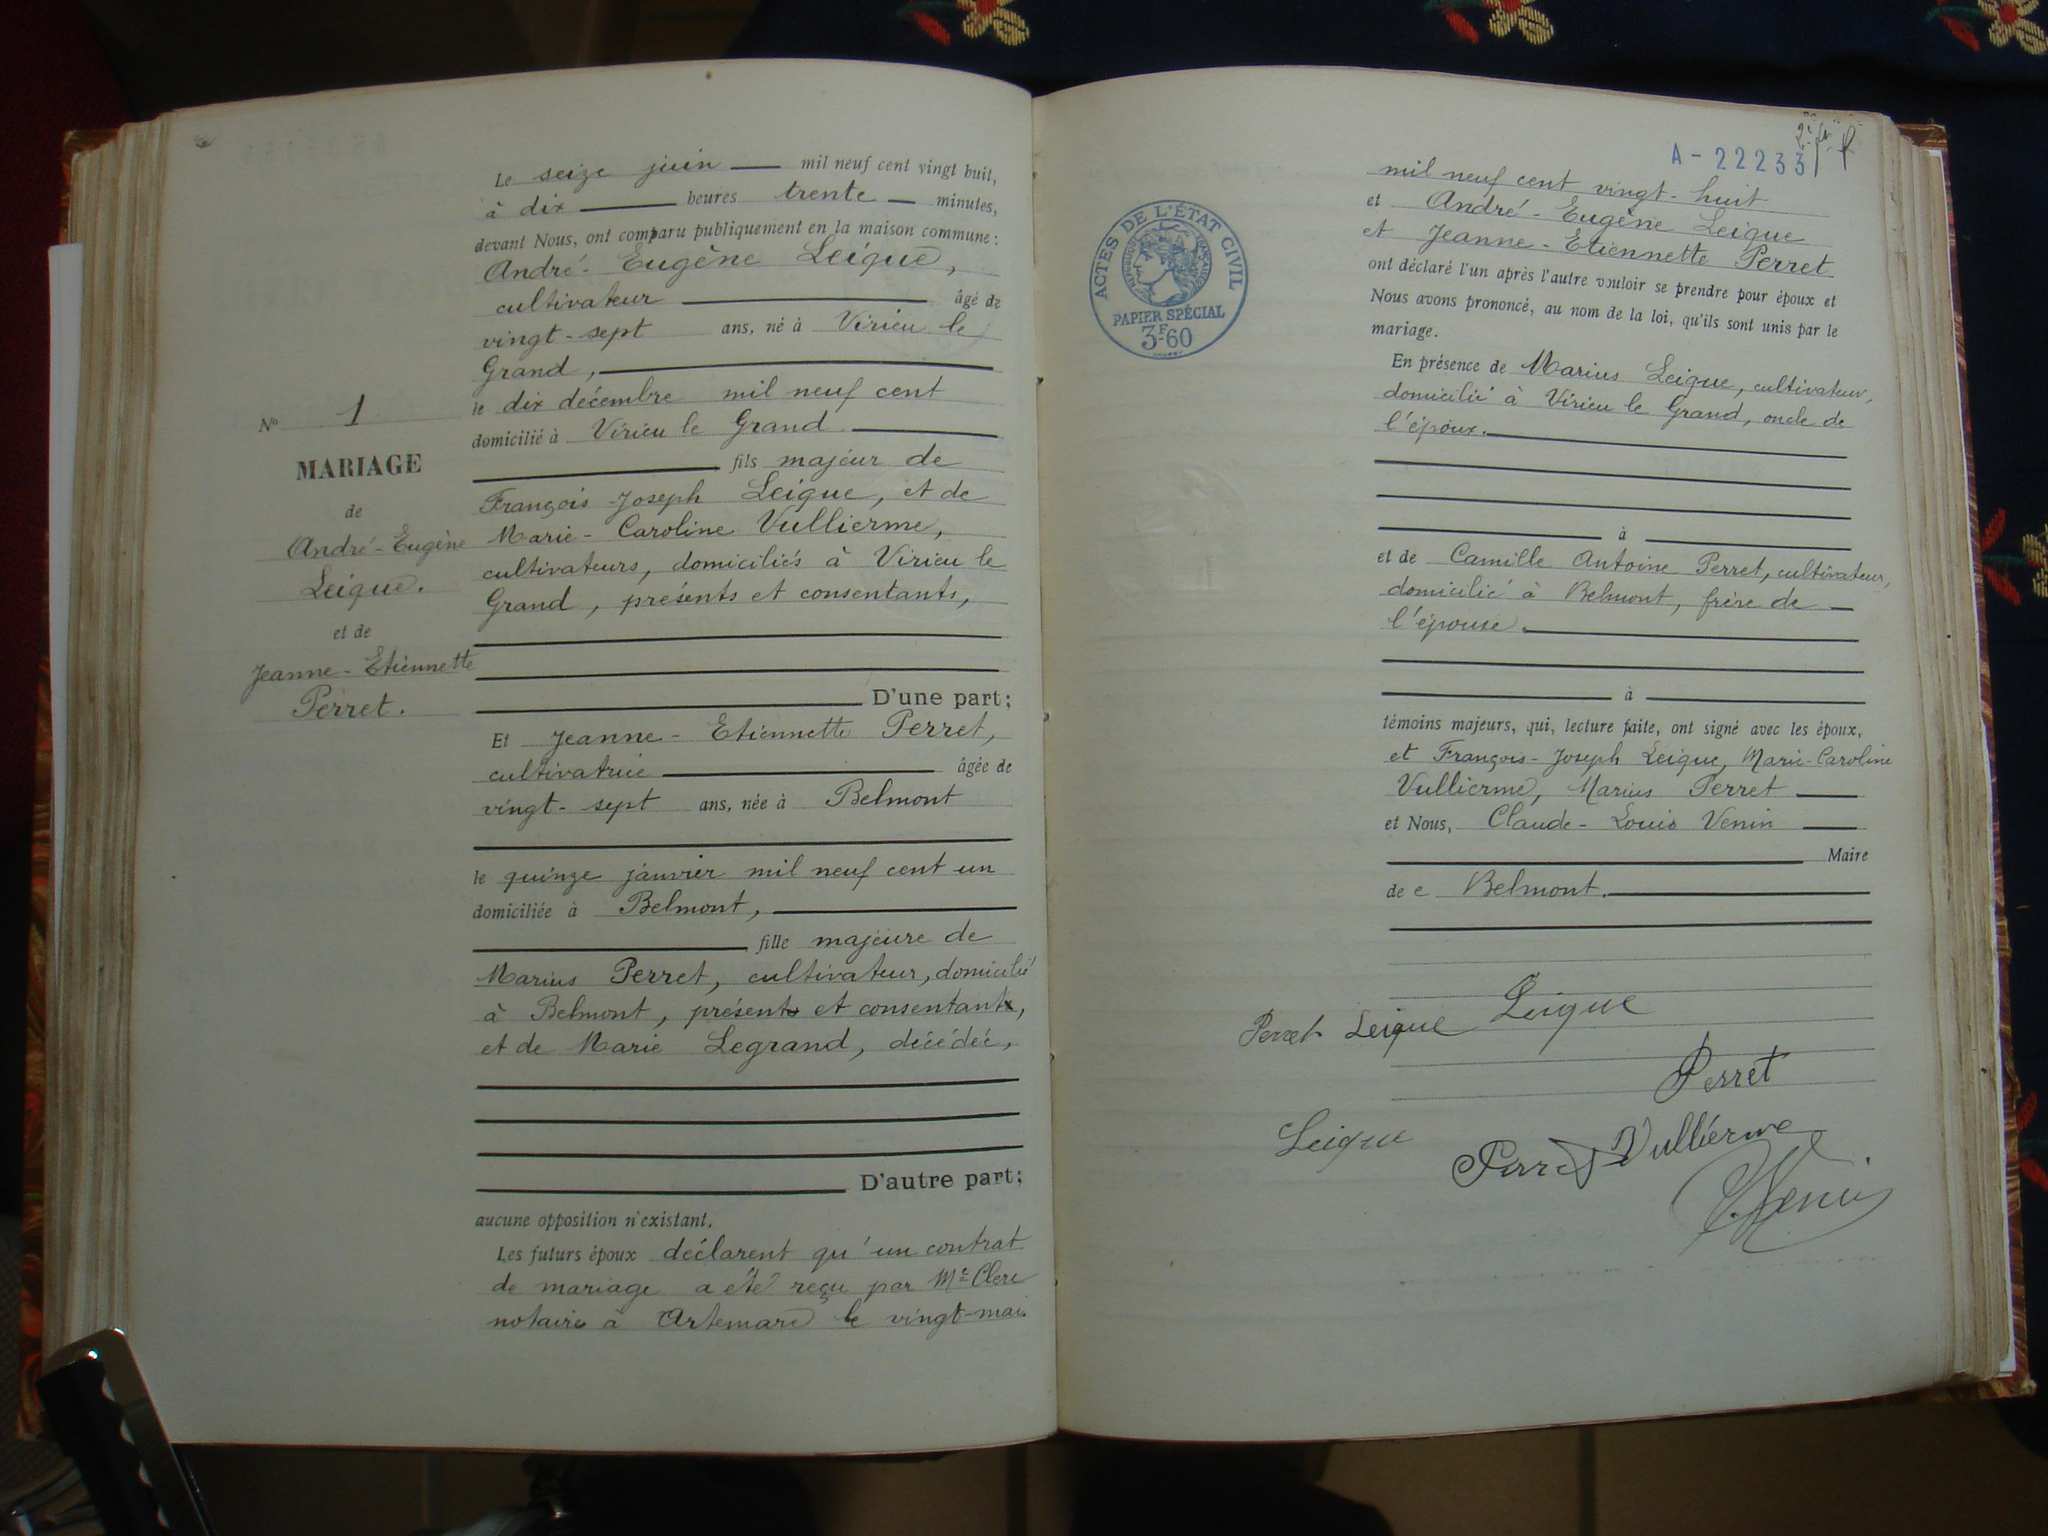 Le seize juin mil neuf cent vingt huit,
à dix heures trente minutes,
devant Nous, ont comparu publiquement en la maison commune :
André-Eugène Leique,
cultivateur âgé de
vingt-sept ans, né à Virieu le
Grand,
le dix décembre mil neuf cent
domicilié à Virieu le Grand
fils majeur de
François-Joseph Leique, et de
Marie-Caroline Vullierme,
cultivateurs, domiciliés à Virieu le
Grand, présents et consentants,
D'une part;
Nº 1
MARIAGE
de
André-Eugène
Leique.
et de
Jeanne-Etiennette
Perret.
Et Jeanne-Etiennette Perret,
cultivatrice âgée de
vingt-sept ans, née à Belmont
le quinze janvier mil neuf cent un
domiciliée à Belmont,
fille majeure de
Marius Perret, cultivateur, domicilié
à Belmont, présent et consentant,
et de Marie Legrand, décédée,
D'autre part;
aucune opposition n'existant.
Les futurs époux déclarent qu'un contrat
de mariage a été reçu par Me Clerc
notaire à Artemare le vingt-mai
A-22233
mil neuf cent vingt-huit
et André-Eugène Leique
et Jeanne-Etiennette Perret
ont déclaré l'un après l'autre vouloir se prendre pour époux et
Nous avons prononcé, au nom de la loi, qu'ils sont unis par le
mariage.
ACTES DE L'ÉTAT CIVIL
PAPIER SPÉCIAL
3F60
En présence de Marius Leique, cultivateur,
domicilié à Virieu le Grand, oncle de
l'époux.
à
et de Camille Antoine Perret, cultivateur,
domicilié à Belmont, frère de
l'épouse.
à
témoins majeurs, qui, lecture faite, ont signé avec les époux,
et François-Joseph Leique, Marie-Caroline
Vullierme, Marius Perret
et Nous, Claude-Louis Venin
Maire
de e Belmont.
Perret Leique Leique
Perret
Leique
Perret Vullierme
Venin